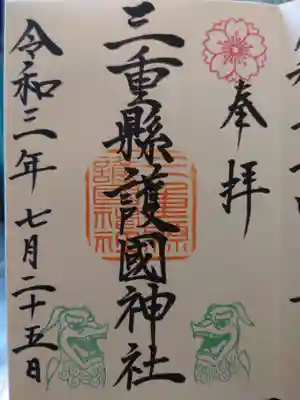 奉拝
三重縣護國神社
令和三年七月二十五日